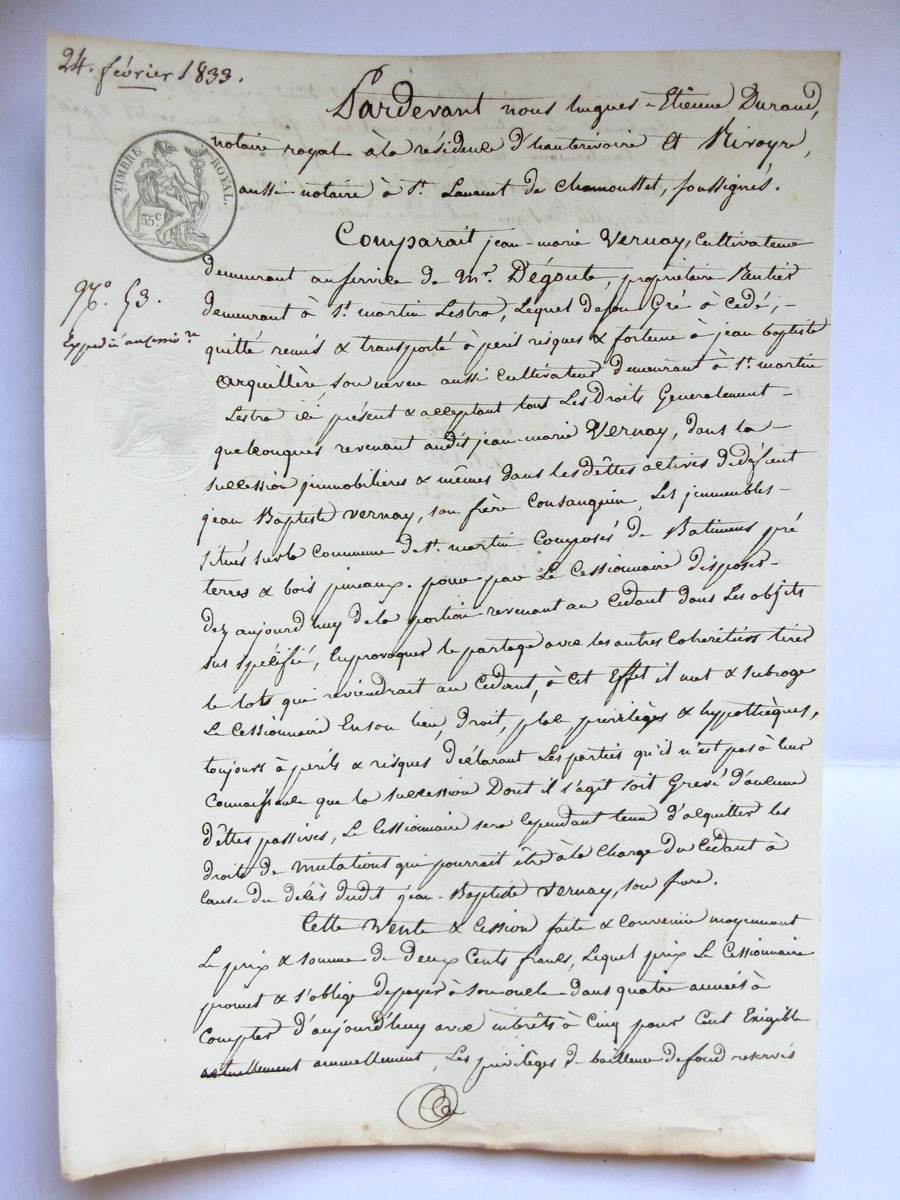 24. février 1833.
Pardevant nous hugues-Etienne Durand,
notaire royal à la résidence d'hauterivoire Et Rivoyre,
aussi notaire à St. Laurent de Chamousset, soussignés.
TIMBRE ROYAL.
35c
Comparait jean-marie Vernay, Cultivateur
demeurant au service de Mr. Dégoute, propriétaire Rentier
demeurant à St. martin Lestra, Lequel de son Gré à Cédé, -
No. 53.
Expédié au cessionre
quitté remis & transporté à péril risques & fortune à jean baptiste
Arquillère, son neveu aussi Cultivateur demeurant à St. martin
Lestra ici présent & acceptant tous Les Droits Generalement -
quelconques revenant audit jean-marie Vernay, dans la -
succession immobilières & mêmes dans les dêttes actives de défunt
jean Baptiste Vernay, son frère Consanguin, Les immeubles -
situés sur la Commune de St. martin Composés de Batimens pré
terres & bois pineaux. pour par Le Cessionnaire disposer -
dez aujourd'huy de la portion revenant au Cédant dans Les objets
sus spécifié, En provoquer le partage avec les autres Cohéritiers tirer
le lots qui reviendrait au Cédant, à Cet Effet il met & subroge
Le Cessionnaire En son lieu, droit, place privilèges & hypothèques,
toujours à périls & risques Déclarant Les parties qu'il n'est pas à leur
Connaissance que la succession Dont il s'agit soit Grevé d'aucune
dêttes passives, Le Cessionnaire sera Cependant tenu d'acquitter les
droits de Mutations qui pourrait être à la Charge du Cédant à
Cause du décès dudit jean-Baptiste Vernay, son frere.
Cette Vente & Cession faite & Convenue moyennant
Le prix & somme de Deux Cents francs, Lequel prix Le Cessionnaire
promet & s'oblige de payer à son oncle dans quatre années à
Compter d'aujourd'huy avec intérêts à Cinq pour Cent Exigible
actuellement annuellement, Les privilèges de bailleur de fond réservés